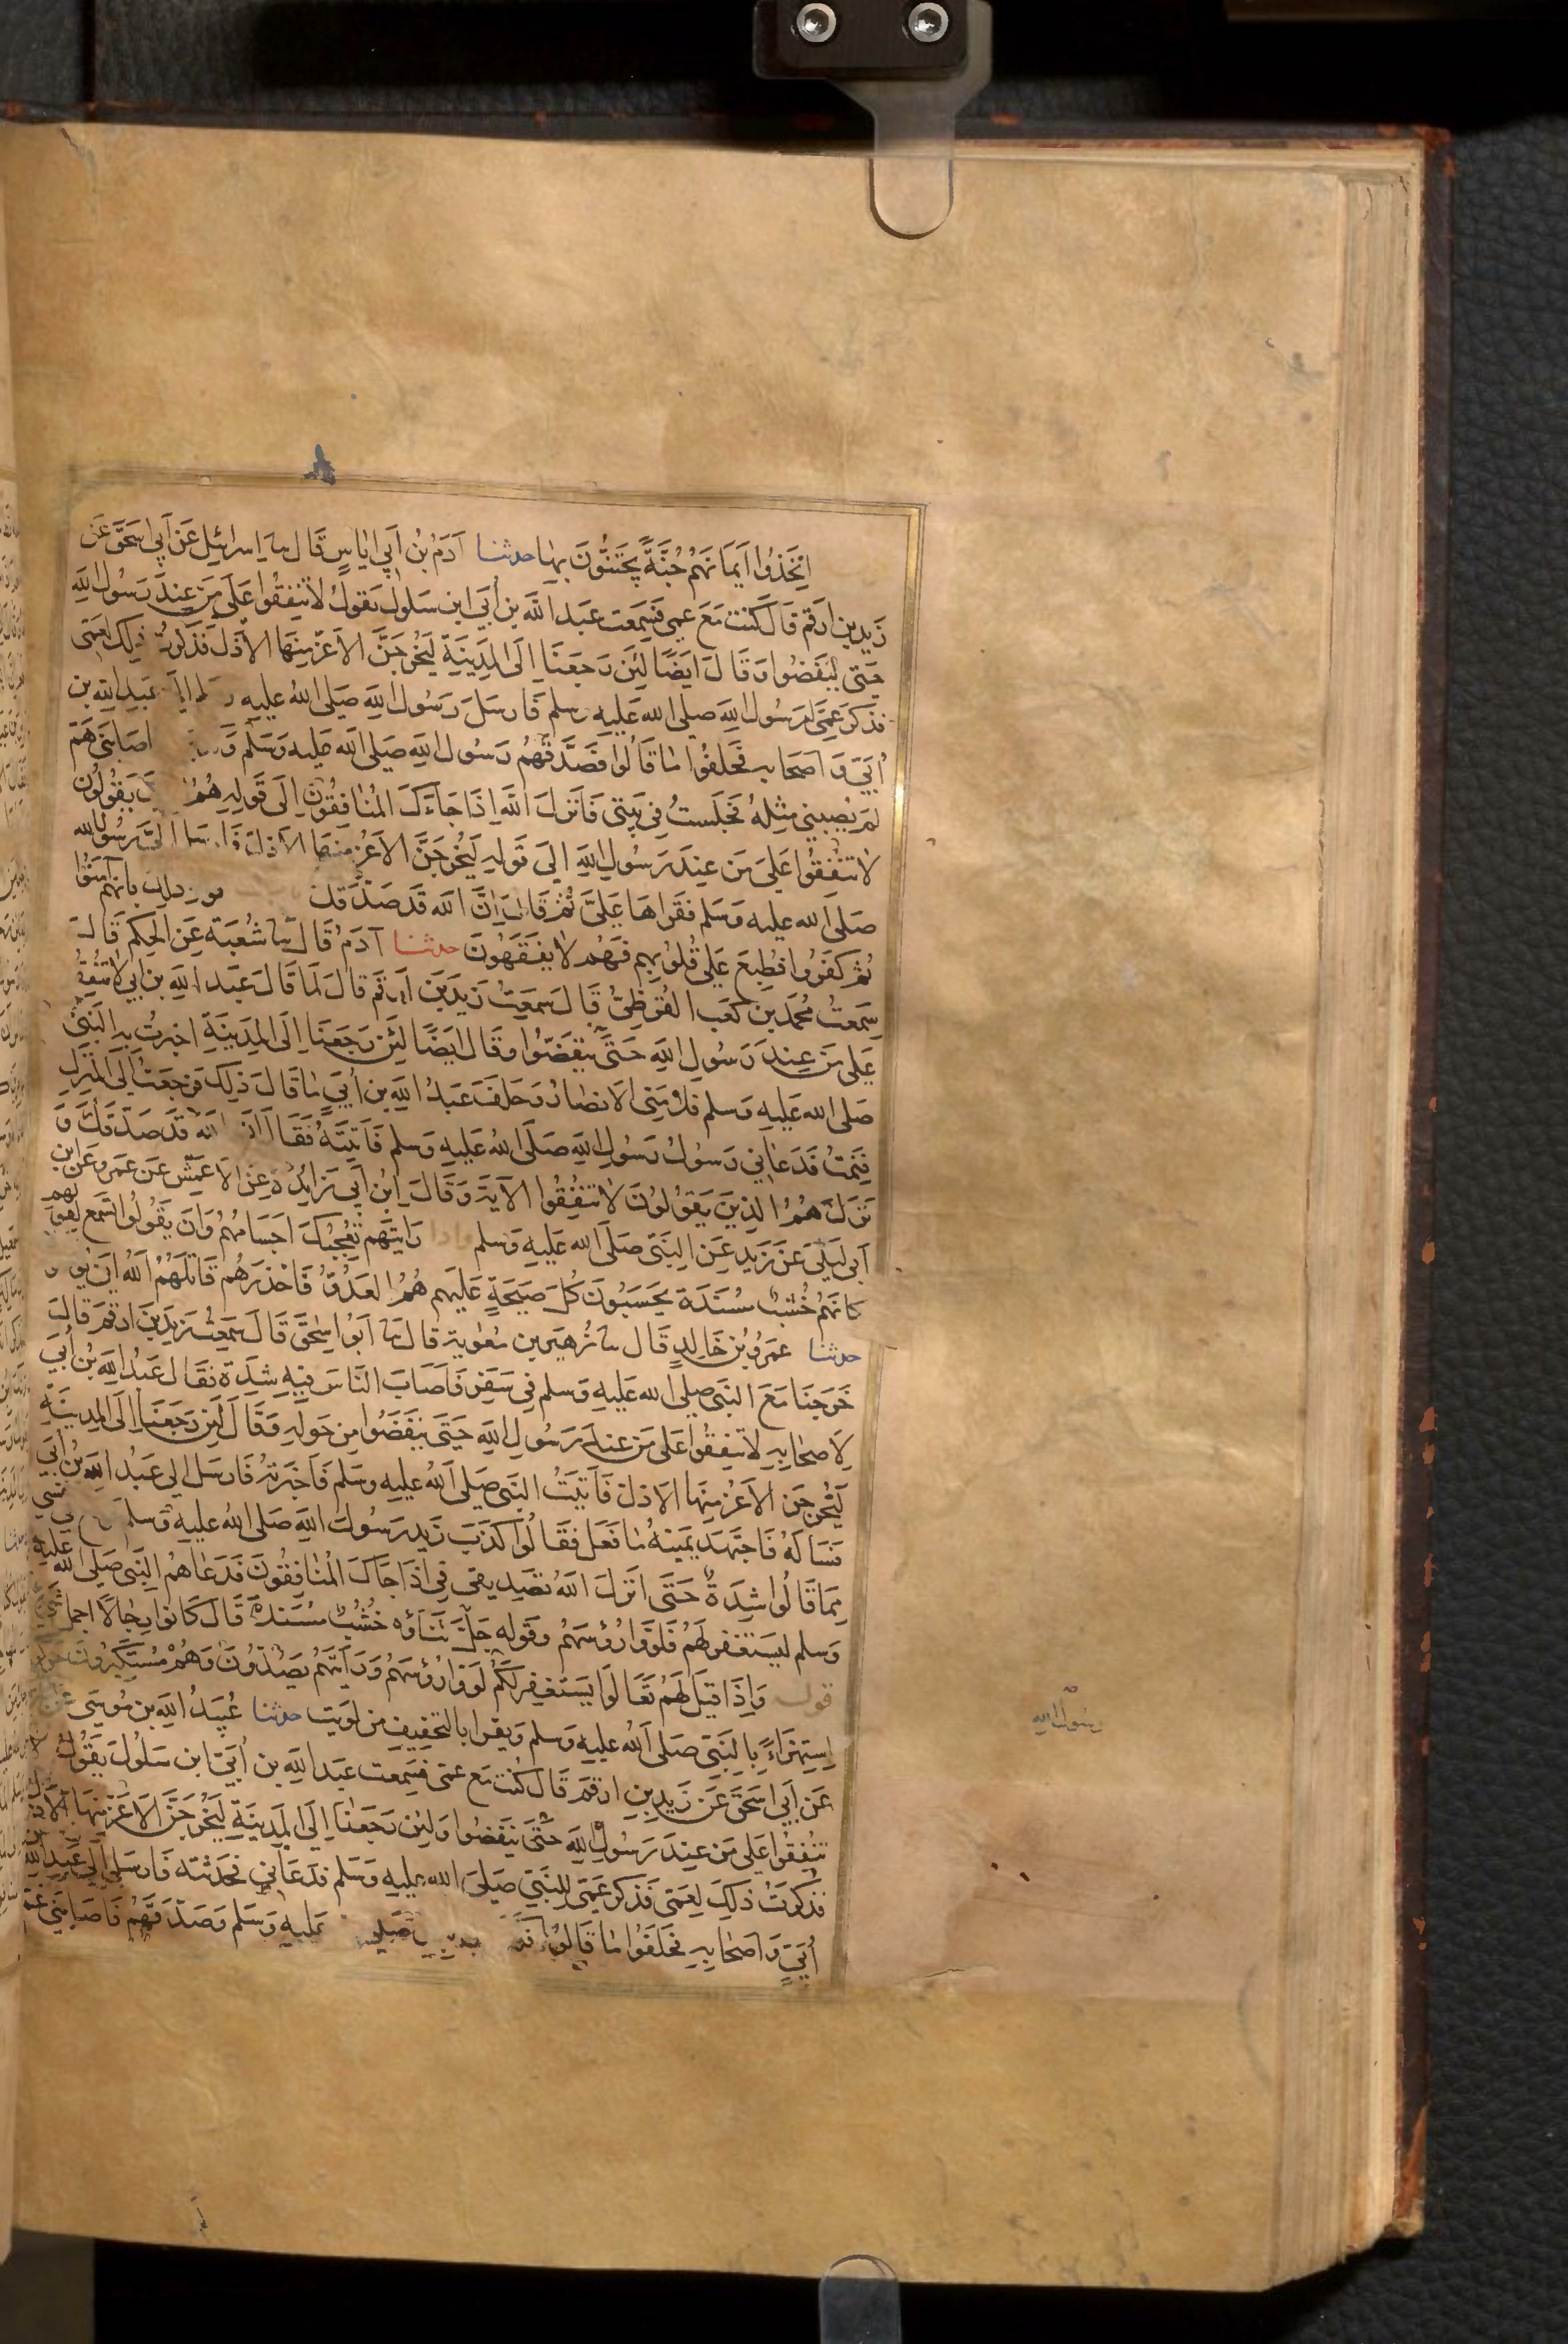 اِتَّخَذُوا اَيمَانَهُمْ جُنَّةً يَجْتَنُّونَ بِهَا حدثنا آدَمُ بْنُ اَبِي اِيَاسٍ قَالَ سا اِسرائيل عَنْ اَبِي اِسحَقَ عَن
زَيدِ بنِ اَرقم قَالَ كُنتُ مَعَ عمِى فَسَمِعت عَبدَ اللهِ بنِ اُبَيّ ابن سَلولَ يَقولُ لاتُنفِقُوا عَلَى مَن عِندَ رَسُولِ اللهِ
حَتى يَنفَضُوا وَقَالَ ايضًا لَئِن رَجَعنَا اِلَى المَدِينَةِ لَيُخرِجَنَّ الاَعَزُّ مِنهَا الاَذَلَّ فَذَكَرتُ ذلِك لِعَمّى
فذكرَ عَمِّى لِرَسُولِ اللهِ صلى الله عَلَيهِ وسلم فَارسَلَ رَسُولُ اللهِ صَلى اللهُ عليهِ عَبدِ اللهِ بن
اُبَيّ وَاَصحَابِهِ فَحَلَفُوا مَا قَالُوا فَصَدَّقَهُم رَسُولُ اللهِ صَلى الله عليه وَسَلم اصَابَنِى هَمٌّ
لَم يُصِبنِي مِثلُهُ فَجَلَستُ فِي بَيتِي فَاَنزلَ اللهُ اِذَا جَاءَكَ المُنَافِقُونَ اِلَى قَولِهِ هُمُ يَقُولُونَ
لاتُنفِقُوا عَلَى مَن عِندَ رَسُولِ اللهِ اِلَى قَولِهِ لَيُخرِجَنَّ الاَعَزُّ مِنهَا الاَذَلَّ اِلَيَّ رَسُولُ الله
صَلَى الله عليه وَسَلم فَقَراهَا عَلَيَّ ثُمَّ قَالَ اِنَّ الله قَد صَدَّقَكَ ذلِكَ بِاَنَّهُم آمَنُوا
ثُمَّ كَفَرُوا فَطُبِعَ عَلَى قُلُوبِهِم فَهُم لا يَفقَهُونَ حدثنا آدَمُ قَالَ سا شُعبَة عَنِ الحَكَمِ قَالَ
سَمِعتُ مُحَمَّدَ بنَ كَعبٍ القُرَظِيَّ قَالَ سَمِعتُ زَيدَ بنَ اَرقَم قَالَ لَمَا قَالَ عَبد اللهِ بن اُبَي لاتُنفِقُوا
عَلى مَن عِندَ رَسُولِ اللهِ حَتَّى يَنفَضُّوا وَقَالَ ايضًا لَئِن رَجَعنَا اِلَى المَدِينَةِ اخبرتُ بِهِ النَّبِيَّ
صَلى الله عَليهِ وَسلم فلامَنِى الاَنصَارُ وَحَلَفَ عَبدُ اللهِ بن اُبَيٍّ مَا قَالَ ذلِكَ فَرَجَعتُ اِلَى المَنزِلِ
فَنِمتُ فَدَعَانِي رَسولُ رَسُولِ اللهِ صَلَى اللهُ عَلَيهِ وَسلم فَاَتَيتُهُ فَقَالَ اِنَّ اللهَ قَد صَدَّقَكَ وَ
نَزلَ هُمُ الذِينَ يَقُولُونَ لا تُنفِقُوا الآيَة وَقَالَ ابنُ اَبِي زَائِدَة عَنِ الاَعمَش عَن عَمرو عَن ابنِ
اَبِى لَيلَى عَن زَيدٍ عَنِ النَّبِيّ صَلَى الله عَلَيهِ وَسَلم وَاِذا رَاَيتَهُم تُعجِبُكَ اَجسَامُهُم وَاِن يَقُولُوا تَسمَع لِقَولِهِم
كَاَنَّهُم خُشُبٌ مُسَنَّدَة يَحسَبُونَ كُلَّ صَيحَةٍ عَلَيهِم هُمُ العَدُوُّ فَاحذَرهُم قَاتَلَهُمُ اللهُ
حدثنا عَمرُو بنُ خَالِدٍ قَالَ سا زُهَيرُ بن مُعوِيَة قَالَ سا اَبُو اِسحَقَ قَالَ سَمِعتُ زَيدَ بنَ ارقَمَ قَالَ
خَرَجنَا مَعَ النَبِى صلى الله عَلَيهِ وَسلم فِى سَفَرٍ فَاَصَابَ النَّاسَ فِيهِ شِدَّة فَقَالَ عَبدُ اللهِ بن اُبَيّ
لِاَصحَابِهِ لاتُنفِقُوا عَلَى مَن عِندَ رَسُولِ اللهِ حَتَى يَنفَضُوا مِن حَولِهِ وَقَالَ لَئِن رَجَعنَا اِلَى المَدِينَةِ
لَيُخرِجَن الاَعَزُّ مِنهَا الاَذَلَّ فَاَتَيتُ النَبِى صَلى اللهُ عَليهِ وسَلم فَاَخبَرتُهُ فَارسَلَ الى عَبدِ اللهِ بنِ اُبَيّ
فَسَاَلَهُ فَاجتَهَدَ يَمِينَهُ مَا فَعَلَ فَقَالُوا كَذَبَ زَيد رَسُولَ اللهِ صَلى اللهُ عَليهِ وَسلم
مِمَا قَالُوا شِدَةٌ حَتَى اَنزَلَ اللهُ تَصدِيقِى فِى اِذَا جَاكَ المُنَافِقُونَ فَدَعَاهُم النَّبِى صَلى الله عَليهِ
وَسلم لِيَستَغفِرَ لَهُم فَلَوَّوا رُؤُسَهُم وَقَوله جَلَّ ثَنَاؤُه خُشُبٌ مُسَنَّدَةٌ قَالَ كَانُوا رِجَالًا اَجمَلَ شَىءٍ
قوله وَاِذَا قِيلَ لَهُم تَعَالَوا يَستَغفِر لَكُم لَوَّوا رُؤُسَهُم وَرَاَيتَهُم يَصُدُّونَ وَهُم مُستَكبِرُونَ
اِستِهزَاءً بِالنَبِيّ صَلى اللهُ عَليهِ وسلم وَيقرا بِالتَّخفِيفِ مِن لَوَيت حدثنا عُبَيدُ اللهِ بن مُوسَى
عَن اَبِي اِسحَقَ عَن زَيدِ بنِ ارقَمَ قَالَ كُنتُ مَعَ عمّى فَسَمِعت عَبدَ اللهِ بن اُبَيّ ابن سَلُولَ يَقُولُ لا
تُنفِقُوا عَلَى مَن عِندَ رَسُولِ اللهِ حَتَّى يَنفَضُوا وَلَئِن رَجَعنَا اِلَى المَدِينَةِ لَيُخرِجَنَّ الاَعَزُّ مِنهَا الاَذَلَّ
فَذَكَرتُ ذلِكَ لِعَمّى فَذَكرَ عَمِّى لِلنَّبِيِّ صَلَى الله عليهِ وَسَلم فَدَعَانِي فَحَدَّثتُه فَارسَلَ اِلَى عَبدِ اللهِ
اُبَيٍّ وَاَصحَابِهِ فَحَلَفُوا مَا قَالُوا صَلى عَليهِ وَسَلم وَصَدَّقَهُم فَاَصَابَنِي غَمٌّ
رسول الله